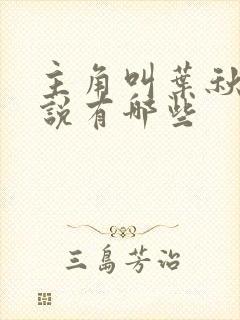 主角叫葉秋
說有哪些
三島芳治